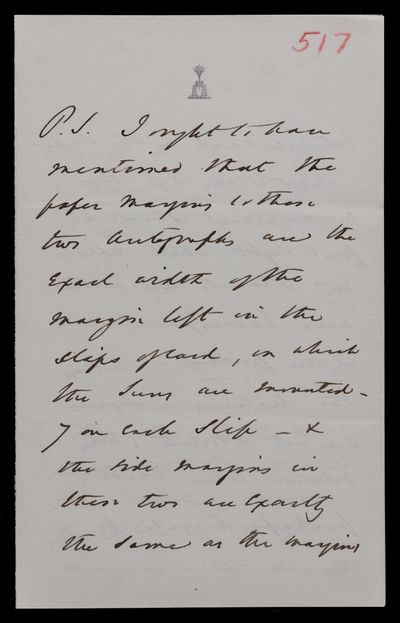 517
P.S. I ought to have
mentioned that the
paper margins to these
two Autographs are the
exact width of the
margin left in the
slips of card, on which
the Suns are mounted -
7 on each slip - &
the side margins in
these two are exactly
the same as the margins